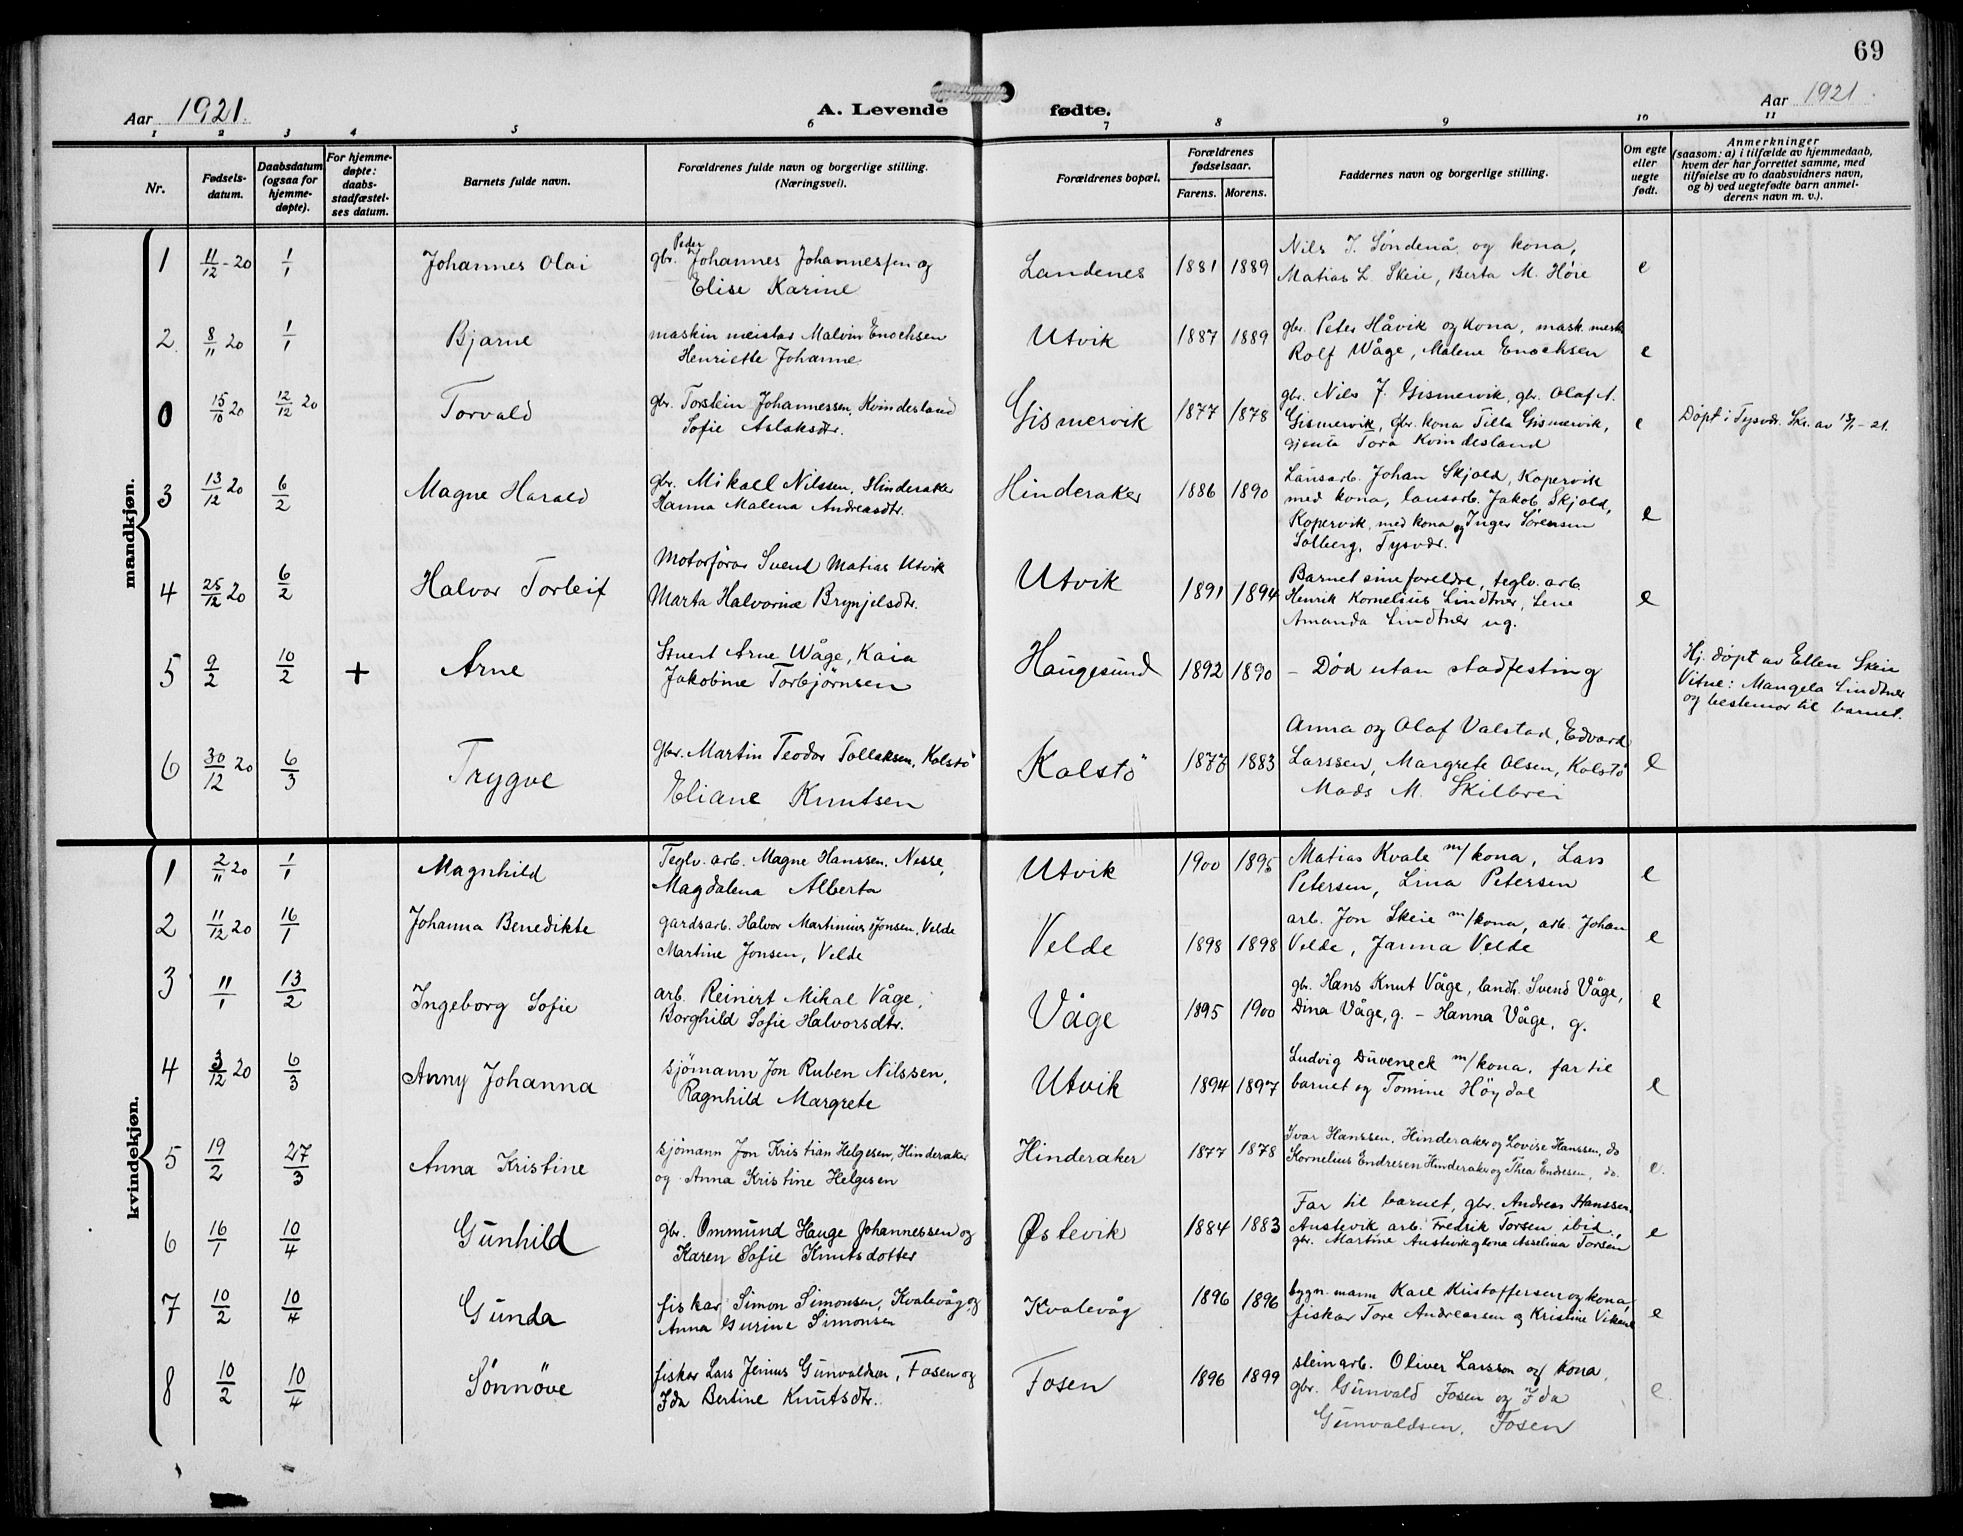 69
Aar 1921.
A. Levende fødte.
Aar 1921.
1 2 3 4 5 6 7 8 9 10 11
Nr.
Fødsels-
datum.
Daabsdatum
(ogsaa for
hjemme-
døpte).
For hjemme-
døpte:
daabs-
stadfæstel-
ses datum.
Barnets fulde navn.
Forældrenes fulde navn og borgerlige stilling.
(Næringsvei).
Forældrenes bopæl.
Forældrenes
fødselsaar.
Farens. Morens.
Faddernes navn og borgerlige stilling.
Om egte
eller
uegte
født.
Anmerkninger
(saasom: a) i tilfælde av hjemmedaab,
hvem der har forrettet samme, med
tilføielse av to daabsvidners navn,
og b) ved uegtefødte barn anmel-
derens navn m. v.).
mandkjøn.
1 11/12-20 1/1 Johannes Olai
Peder
gbr. Johannes Johannessen og
Elise Karine
Landenes 1881 1889
Nils J. Søndenå og kona,
Matias L. Skeie, Berta M. Høie
e
2. 8/11 20 1/1 Bjarne
maskin meister Malvin Enochsen
Henriette Johanne
Utvik 1887 1889
gbr. Peter Håvik og kona, mask. mestr.
Rolf Våge, Malene Enochsen
e
0 15/10 20 12/12 20 Torvald
gbr. Torstein Johannessen, Kvindesland
Sofie Aslaksdtr.
Gismervik 1877 1878
gbr. Nils J. Gismervik, gbr. Olaf A.
Gismervik, gbr. kona Tilla Gismervik,
gjenta Tora Kvindesland
e
Døpt i Tysvær. Skr. av 13/1-21.
3 13/12 20 6/2 Magne Harald
gbr. Mikael Nilssen, Hinderaker
Hanna Malena Andreasdtr.
Hinderaker 1886 1890
Lausarb. Johan Skjold, Kopervik
med kona, lausarb. Jakob Skjold,
Kopervik, med kona og Inger Sørensen
Solberg, Tysvær.
e
4 25/12 20 6/2 Halvor Torleif
Motorførar Svend Matias Utvik
Marta Halvorine Brynjelsdtr.
Utvik 1891 1894
Barnet sine foreldre, teglv. arb.
Henrik Kornelius Lindtner, Lene
Amanda Lindtner ug.
e
5 9/2 10/2 + Arne
Stuert Arne Våge, Kaia
Jakobine Torbjørnsen
Haugesund 1892 1890
- Død utan stadfesting
Hj. døpt av Ellen Skeie
Vitne: Mangela Lindtner
og bestemor til barnet.
6 30/12 20 6/3 Trygve
gbr. Martin Teodor Tollaksen, Kolstø
Eliane Knutsen
Kolstø 1877 1883
Anna og Olaf Valstad, Edvard
Larssen, Margrete Olsen, Kolstø
Mads M. Skilbrei
e
kvindekjøn.
1 2/11 20 1/1 Magnhild
Teglv. arb. Magne Hanssen, Nesse,
Magdalena Alberta
Utvik 1900 1895
Matias Kvale m/kona, Lars
Petersen, Lina Petersen
e
2 11/12 20 16/1 Johanna Benedikte
gardsarb. Halvor Martinius Jonsen, Velde
Martine Jonsen, Velde
Velde 1898 1898
arb. Jon Skeie m/kona, arb. Johan
Velde, Janna Velde
e
3 11/1 13/2 Ingeborg Sofie
arb. Reinert Mikal Våge,
Borghild Sofie Halvorsdtr.
Våge 1895 1900
gbr. Hans Knut Våge, landh. Svend Våge,
Dina Våge, g. - Hanna Våge, g.
e
4 3/12 20 6/3 Anny Johanna
sjømann Jon Ruben Nilssen,
Ragnhild Margrete
Utvik 1894 1897
Ludvig Düveneck m/kona, far til
barnet og Tomine Høydal
e
5 19/2 27/3 Anna Kristine
sjømann Jon Kristian Helgesen, Hinderaker
og Anna Kristine Helgesen
Hinderaker 1877 1878
Ivar Hanssen, Hinderaker og Lovise Hanssen, do
Kornelius Endresen Hinderaker og Thea Endresen, do.
e.
6 16/1 10/4 Gunhild
gbr. Ommund Hauge Johannessen og
Karen Sofie Knutsdotter
Østevik 1884 1883
Far til barnet, gbr. Andreas Hanssen
Austevik arb. Fredrik Torsen ibid,
gbr. Martine Austevik og kona Asselina Torsen
e
7 10/2 10/4 Gunda
fiskar Simon Simonsen, Kvalevåg og
Anna Gurine Simonsen
Kvalevåg 1896 1896
bygn. mann Karl Kristoffersen og kona,
fiskar Tore Andreassen og Kristine Vikane
e
8 10/2 10/4 Sønnøve
fiskar Lars Jenius Gunvaldsen, Fosen og
Ida Bertine Knutsdtr.
Fosen 1896 1899
steinarb. Oliver Larsson og kona,
gbr. Gunvald Fosen og Ida
Gunvaldsen, Fosen
e